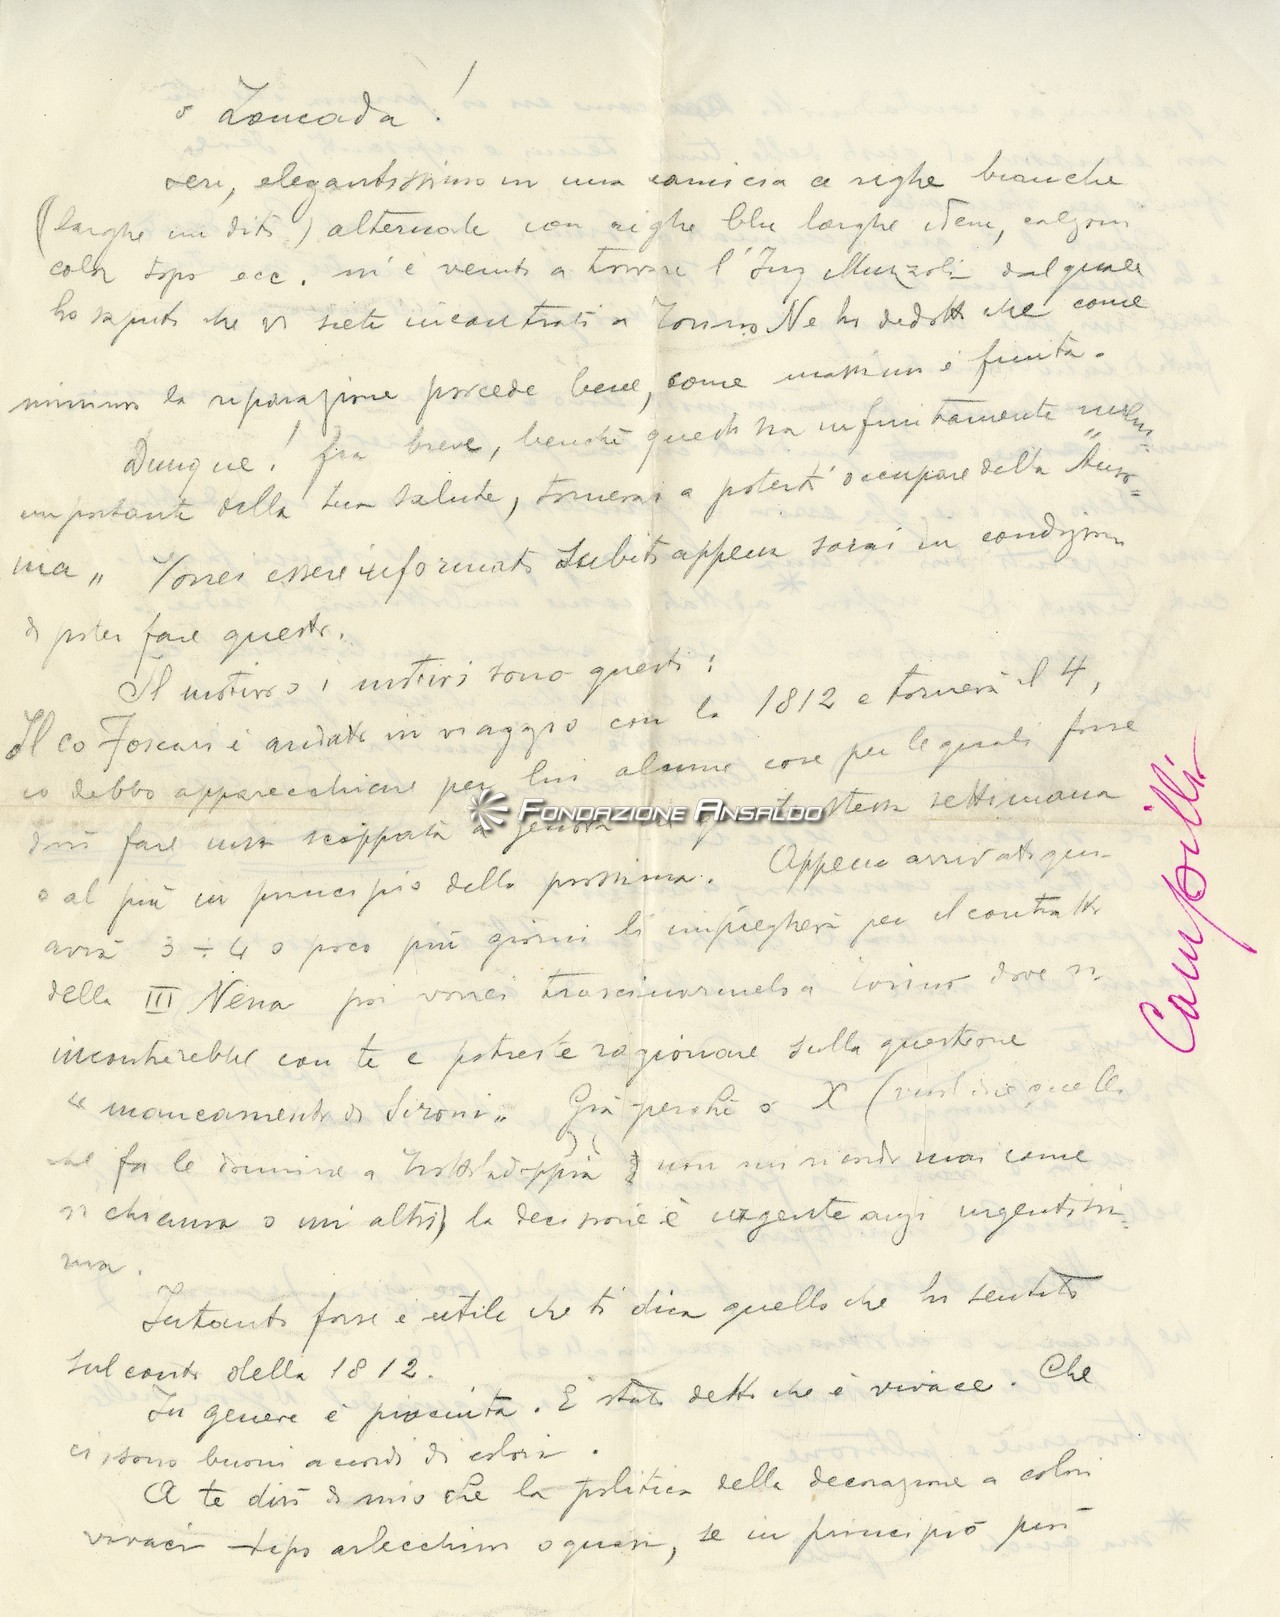 o Zoncada!
Ieri, elegantissimo in una camicia a righe bianche
(larghe un dito) alternate con righe blu larghe idem, calzoni
color topo ecc. m'è venuto a trovare l'Ing Muzzoli dal quale
ho saputo che vi siete incontrati a Torino. Ne ho dedotto che come
minimo la riparazione procede bene, come massimo è finita.
Dunque! fra breve, benché questo sia infinitamente meno
importante della tua salute, tornerai a poterti occupare della "Auso-
nia" Vorrei essere informato subito appena sarai in condizioni
di poter fare questo.
Il motivo o i motivi sono questi:
Il co Foscari è andato in viaggio con la 1812 e tornerà il 4,
io debbo apparecchiare per lui alcune cose per le quali forse
dovrò fare una scappata a Genova in questa stessa settimana
o al più in principio della prossima. Appena arrivato qui
avrà 3 ÷ 4 o poco più giorni li impiegherà per il contratto
della III Nena poi vorrei trascinarmelo a Torino dove si
incontrerebbe con te e potreste ragionare sulla questione
"mancamento di Sironi" Già perché o X (vuol dire quello
che fa le donnine a non mi ricordo mai come
si chiama) o un altro, la decisione è urgente anzi urgentissi-
ma.
Intanto forse è utile che ti dica quello che ho sentito
sul conto della 1812.
In genere è piaciuta. È stato detto che è vivace. Che
ci sono buoni accordi di colori.
A te dirò di mio che la politica della decorazione a colori
vivaci tipo arlecchino o quasi, se in principio può
Campilli
Fondazione Ansaldo